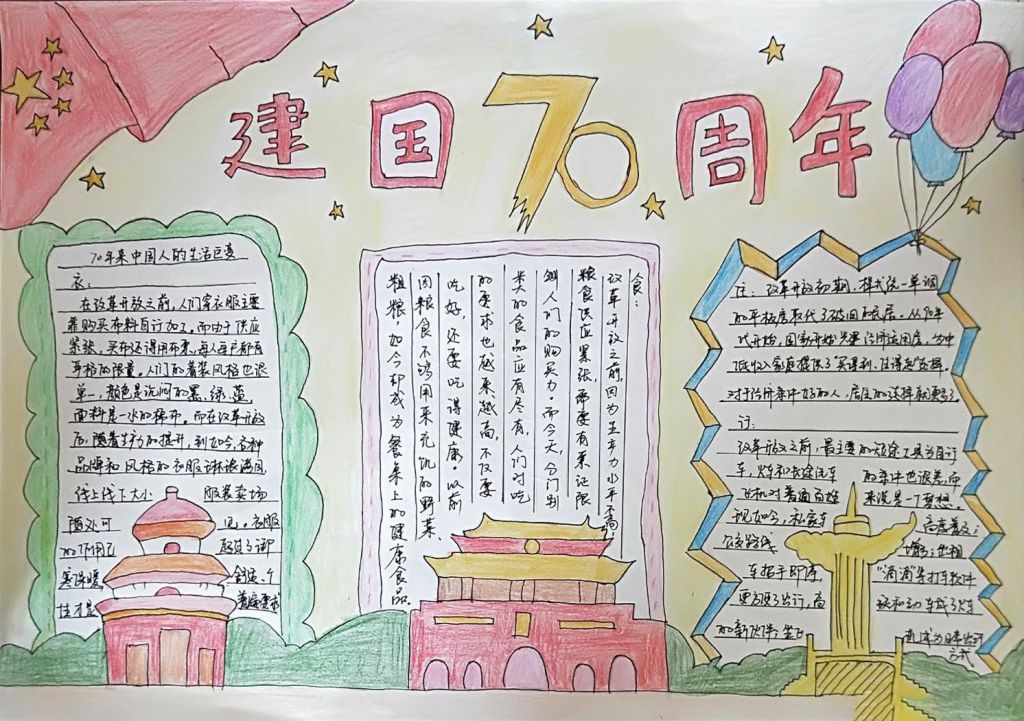 建国70周年
70年来中国人的生活巨变
衣：
在改革开放之前,人们穿衣服主要
靠购买布料自订加工。而由于供应
紧张,买布还得用布票,每人每户都有
严格的限量。人们的着装风格也很
单一,颜色是沉闷的黑、绿、蓝,
面料是一水的棉布。而在改革开放
后,随着生产力的提升,到如今,各种
品牌和风格的衣服琳琅满目,
线上线下大小 服装卖场
随处可 见。衣服
的作用已 超过了御
寒保暖,
食：
改革开放之前,因为生产力水平不高,
粮食供应紧张,都要有票证限
制人们的购买力。而今天,分门别
类的食品应有尽有,人们对吃
的要求也越来越高,不仅要
吃好,还要吃得健康。以前
因粮食不够用来充饥的野菜、
粗粮,如今却成为餐桌上的健康食品。
住：改革开放初期,样式统一单调
的平板房取代了破旧的瓦房。从90年
代开始,国家开始
低收入家庭提供了"买得到,住得起"
对于经济条件好的人,居住的选择就更多了
行：
改革开放之前,最主要的短途工具为自行
车,火车和长途汽车 的条件也很差,而
飞机对普通百姓 来说是一丁梦想。
现如今,私家车 高度普及；
公交路线 增多；出租
车招手即停, "滴滴"等打车软件
更方便了出行,高
的新伙伴,坐飞
方式